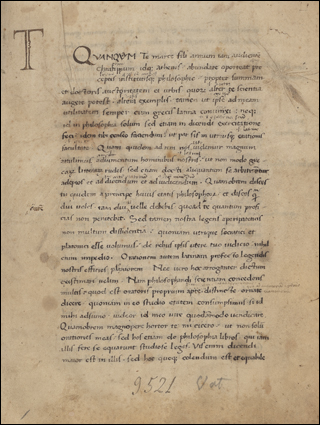 T
QVANQVAM Te marce fili annum iam audientem
Cratippum idq; athenis abundare oportet pre
ceptis institutisq; philosophie propter summam
et doctoris auctoritatem et urbis quor; alter te scientia
augere potest altera exemplis tamen ut ipse ad meam
utilitatem semper cum grecis latina coniunxi neq;
id in philosophia solum sed etiam in dicendi exercitatione
feci idem tibi censeo faciendum ut par sis in utriusq; orationis
facultate Quam quidem ad rem nos ut uidemur magnum
attulimus adiumentum hominibus nostris ut non modo gre
car litterar rudes sed etiam docti aliquantum se arbitrentur
adeptos et ad dicendum et ad iudicandum Quamobrem disces
tu quidem a principe huius etatis philosophor et disces q
diu uoles tam diu uelle debebis quoad te quantum profi
cias non penitebit Sed tamen nostra legens
non multum dissidentia a quoniam utriq; socratici et
platonici esse uolumus de rebus ipsis utere tuo iudicio nihil
enim impedio Orationem autem latinam profecto legendis
nostris efficies pleniorem Nec uero hoc arroganter dictum
existimari uelim Nam philosophandi scientiam concedens
multis quod est oratoris proprium apte distincte ornate
dicere quoniam in eo studio etatem consumpsi si id
mihi assumo uideor id meo iure quodammodo uendicare
Quamobrem magnopere hortor te mi cicero ut non solu
orationes meas sed hos etiam de philosophia libros qui iam
illis fere se equarunt studiose legas Vis enim dicendi
maior est in illis sed hoc quoq; colendum est et equabile
9521